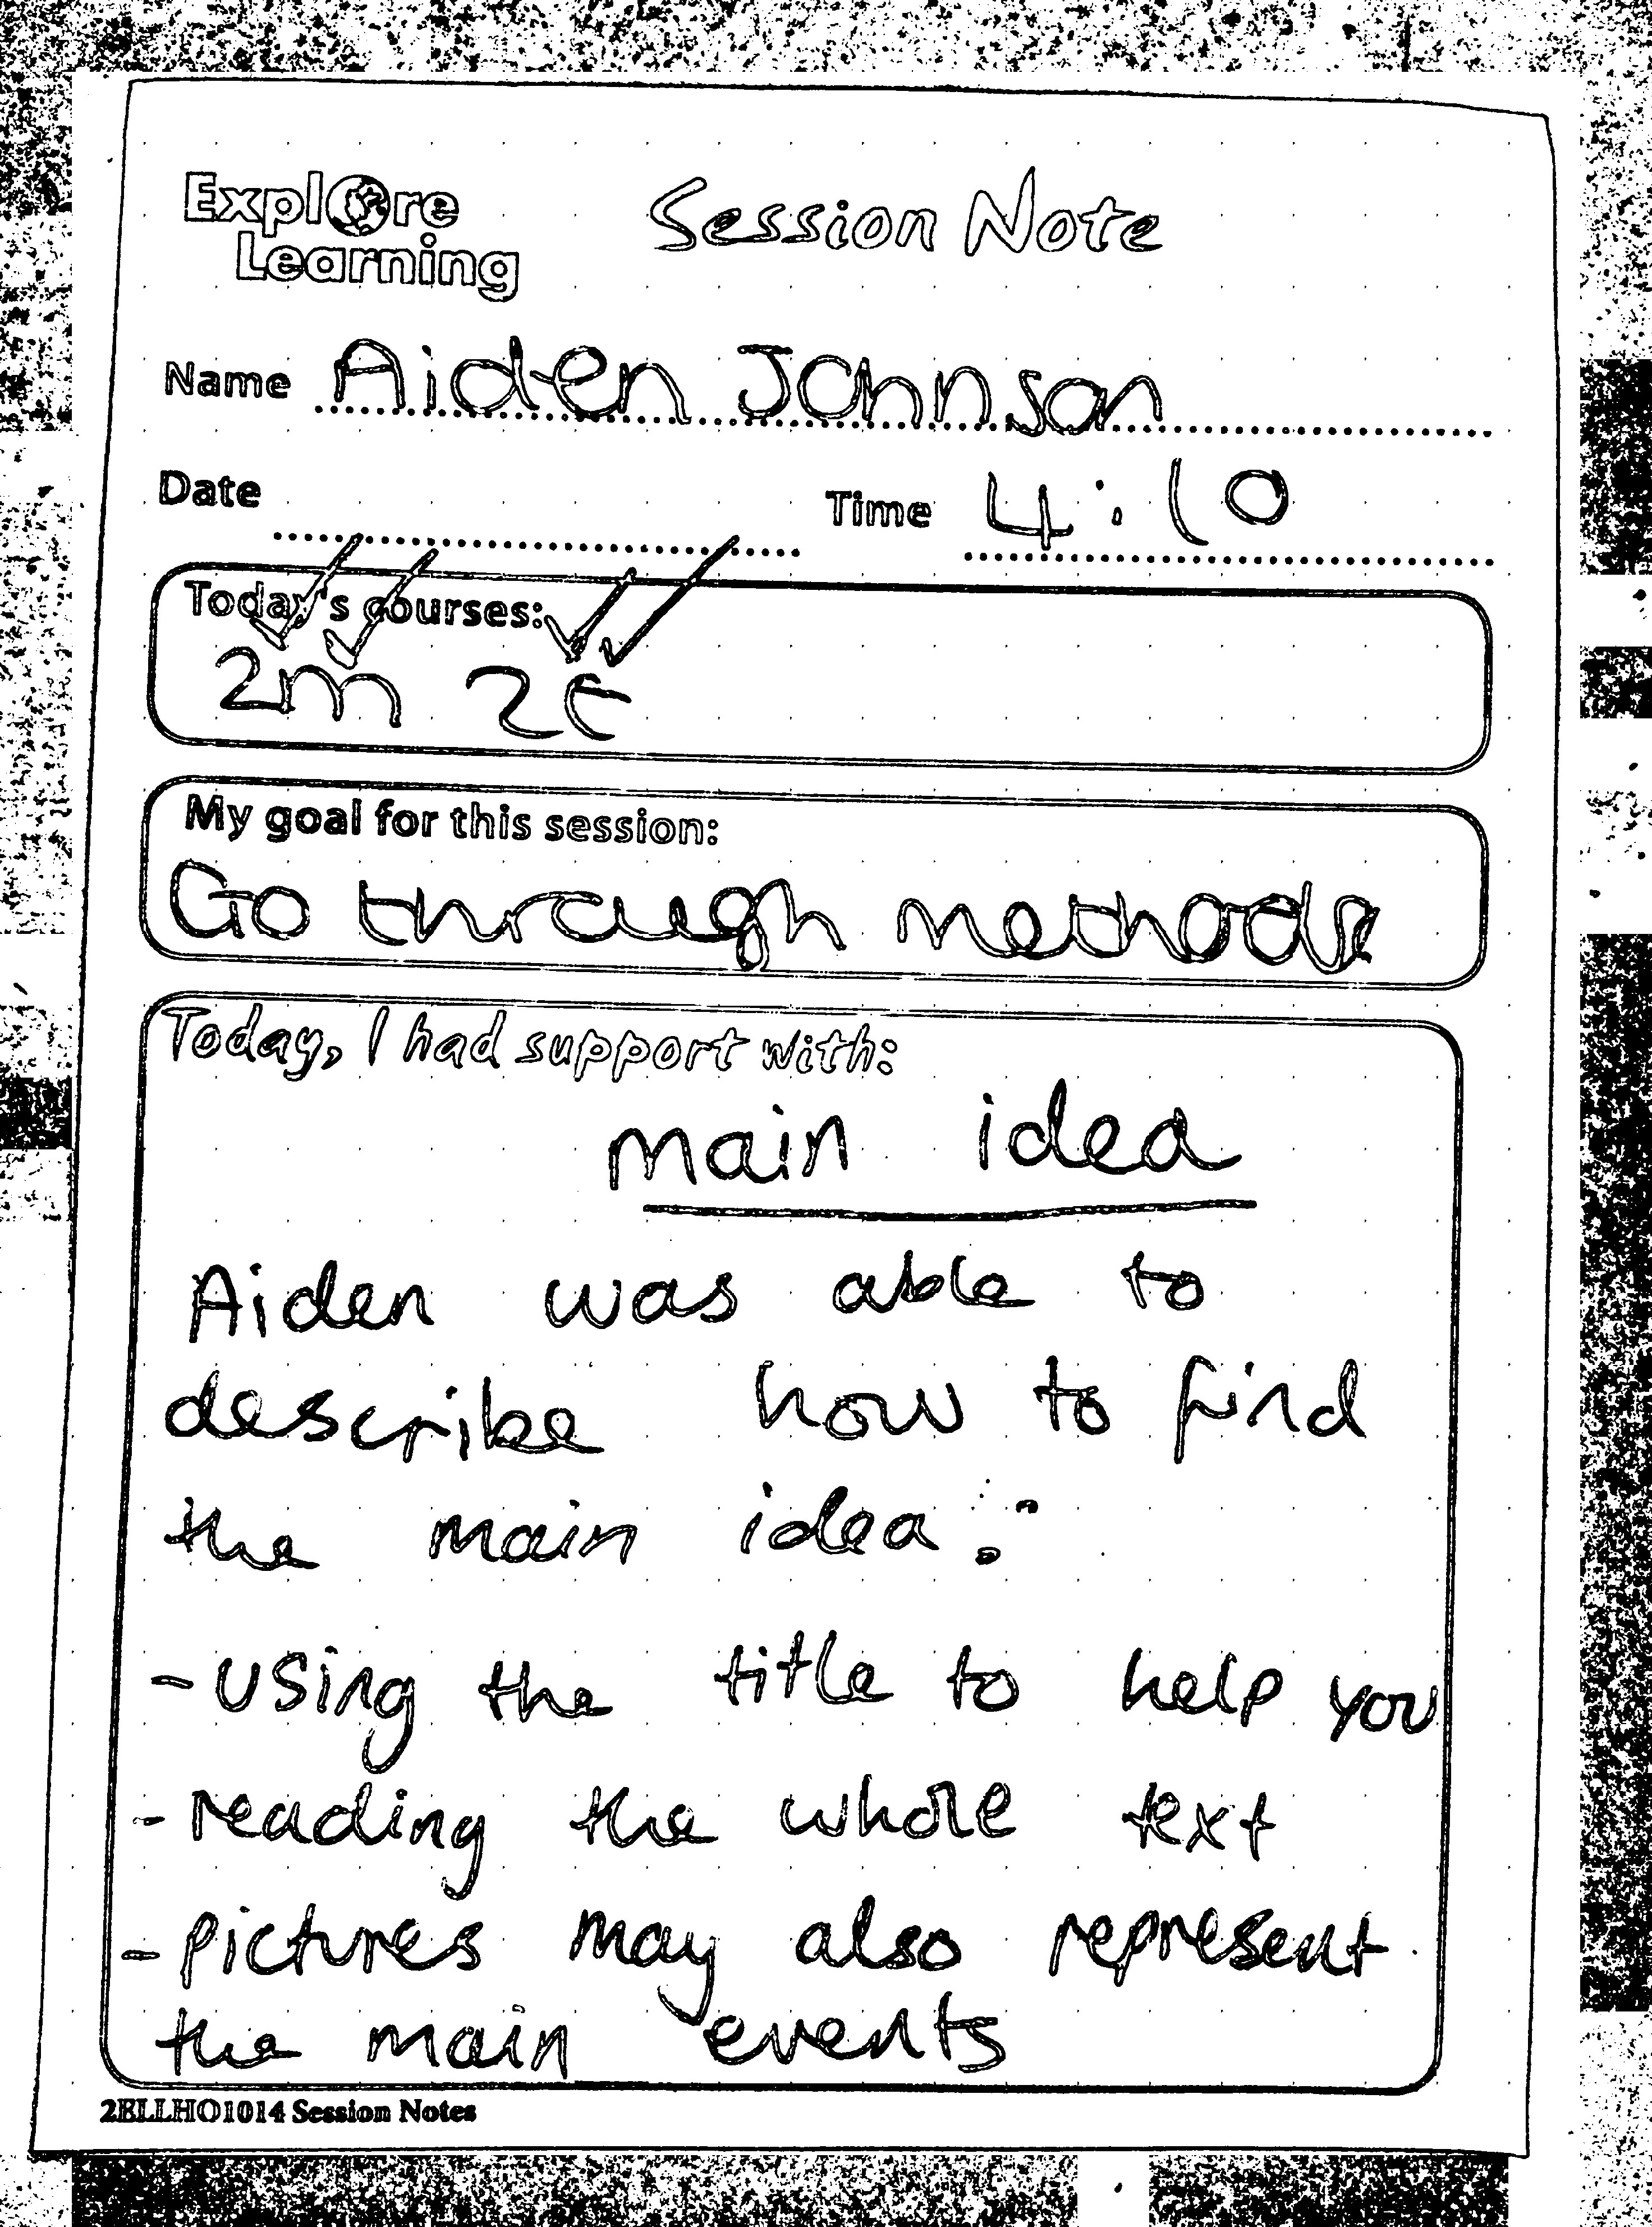 Explore
Learning
Session Note
Name Aiden Johnson
Date Time 4:10
Today's courses:
2m 2E
My goal for this session:
Go through methods
Today, I had support with:
main idea
Aiden was able to
describe how to find
the main idea:
- using the title to help you
- reading the whole text
- pictures may also represent
the main events
2ELLHO1014 Session Notes